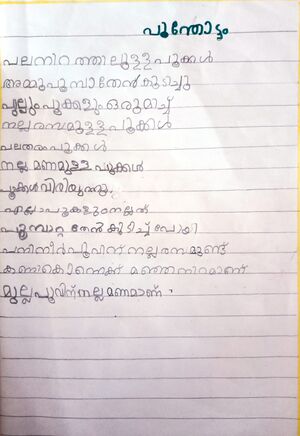 പൂന്തോട്ടം
പലനിറത്തിലുള്ള പൂക്കൾ
അമ്മുപൂമ്പാതേൻകുടിച്ചു
പുല്ലും പൂക്കളും ഒരുമിച്ച്
നല്ലരസമുള്ള പൂക്കൾ
പലതരംപൂക്കൾ
നല്ല മണമുള്ള പൂക്കൾ
പൂക്കൾവിരിയുന്നു.
എല്ലാപൂകളുംനല്ലത്
പൂമ്പാറ്റ തേൻകുടിച്ച് പോയി
പനിനീർപൂവിന് നല്ലരസമുണ്ട്
കണികൊന്നെക്ക് മഞ്ഞനിറമാണ്
മുല്ലപൂവിന്നല്ലമണമാണ്.